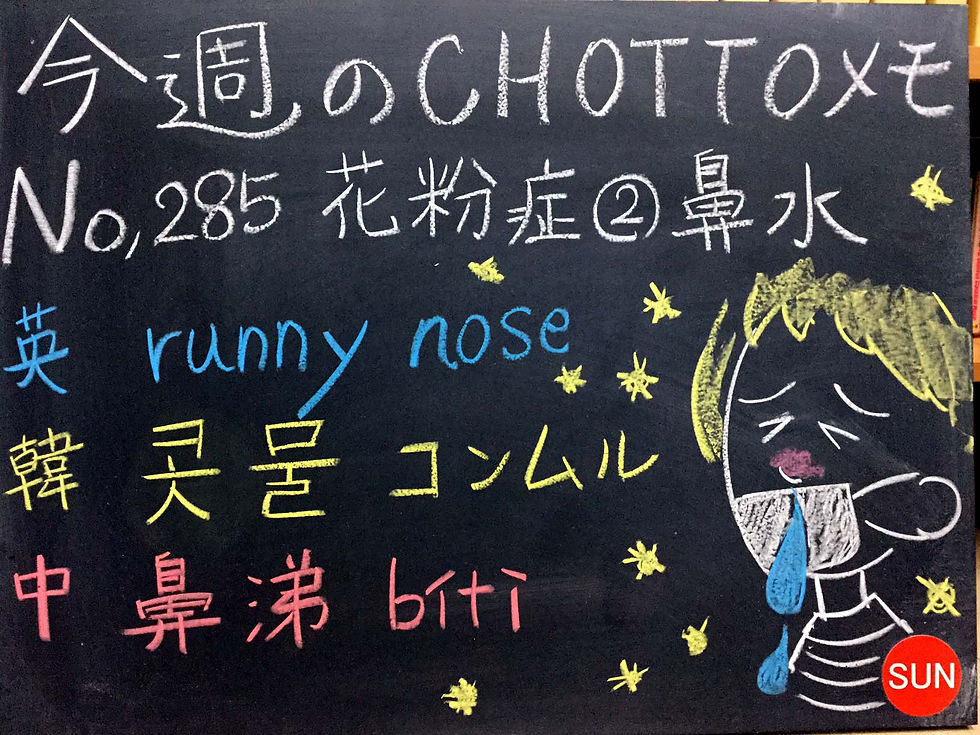 今週のCHOTTOメモ
No,285 花粉症②鼻水
英 runny nose
韓 콧물 コンムル
中 鼻涕 bíti
SUN